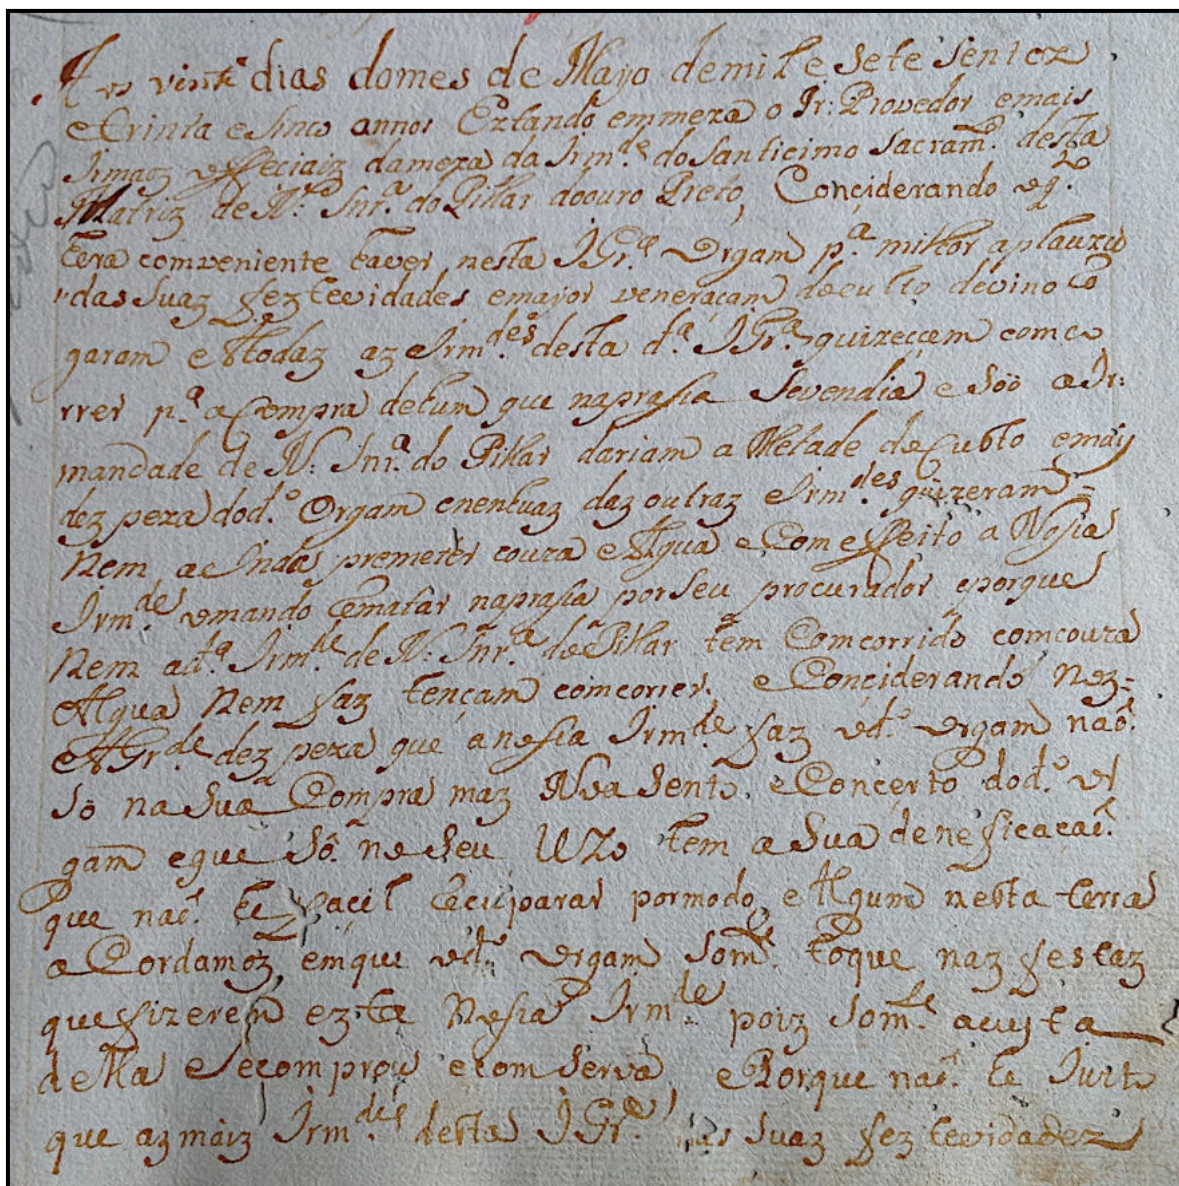 Aos vinte dias domes de Mayo demil e Sete Sentos
e trinta e Sinco annos Estando emmeza o Ir: Provedor emais
Irmaoz e offeciaiz dameza da Irm.de do Santicimo Sacram.to desta
Matriz de N.ª Snr.ª do Pillar doouro Preto, Conciderando o q.to
hera comveniente haver nesta IGr.ª Orgam p.ª milhor aplauzo
das Suaz fezteividades emayor veneraçam do culto devino Ro
garam a ttodaz az Irm.des desta d.ª IGr.ª quizeçem comco
rrer p.ª a Compra dehum que naprasa Sevendia e Sóó a Ir:
mandade de N: Snr.ª do Pillar dariam a Metade do Custo emay
dezpeza dod.º Orgam enenhuaz daz outraz Irm.des quizeram=
Nem ainda prometer couza algua e Com effeito a Nossa
Irm.de o mandó Rematar naprasa por Seu procurador eporque
Nem ad.ª Irm.de de N: Snr.ª do Pillar tem Comcorrido comcouza
Algua Nem faz tençam comcorrer. e Conciderando Nez=
A Gr.de dezpeza que anossa Irm.de faz od.º orgam naõ.
Só na Sua Compra maz No asento, e Concerto dod.º or
gam eque Só. no Seu UZo tem a Sua deneficacaõ.
que naõ. he facil Recuparar pormodo, Algum nesta terra
aCordamoz, emque od.º orgam Som.te toque naz festaz
que fizerem ezta Nossa Irm.de poiz Som.te acusta
de lla Secomprou ecomServa, e Porque naõ. he Justo
que az maiz Irm.des desta IGr.ª nas Suaz fezteividadez